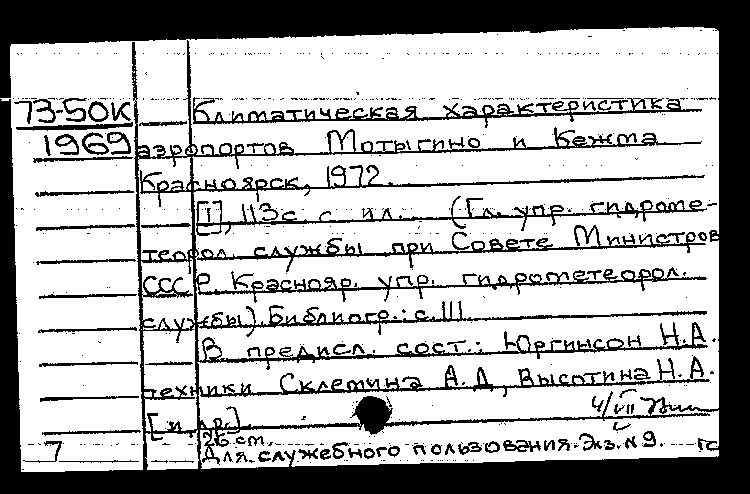 73-50К Климатическая характеристика
1969 аэропортов Мотыгино и Кежма
Красноярск, 1972.
[1], 113с. с ил. (Гл. упр. гидроме-
теорол. службы при Совете Министров
СССР. Краснояр. упр. гидрометеорол.
службы). Библиогр.: с. 111
В предисл. сост.: Юргинсон Н.А.
техники Склемина А.Д, Высотина Н.А.
4/VII
[и др.]
26 см.
7 Для служебного пользования. Экз. N 9. гс